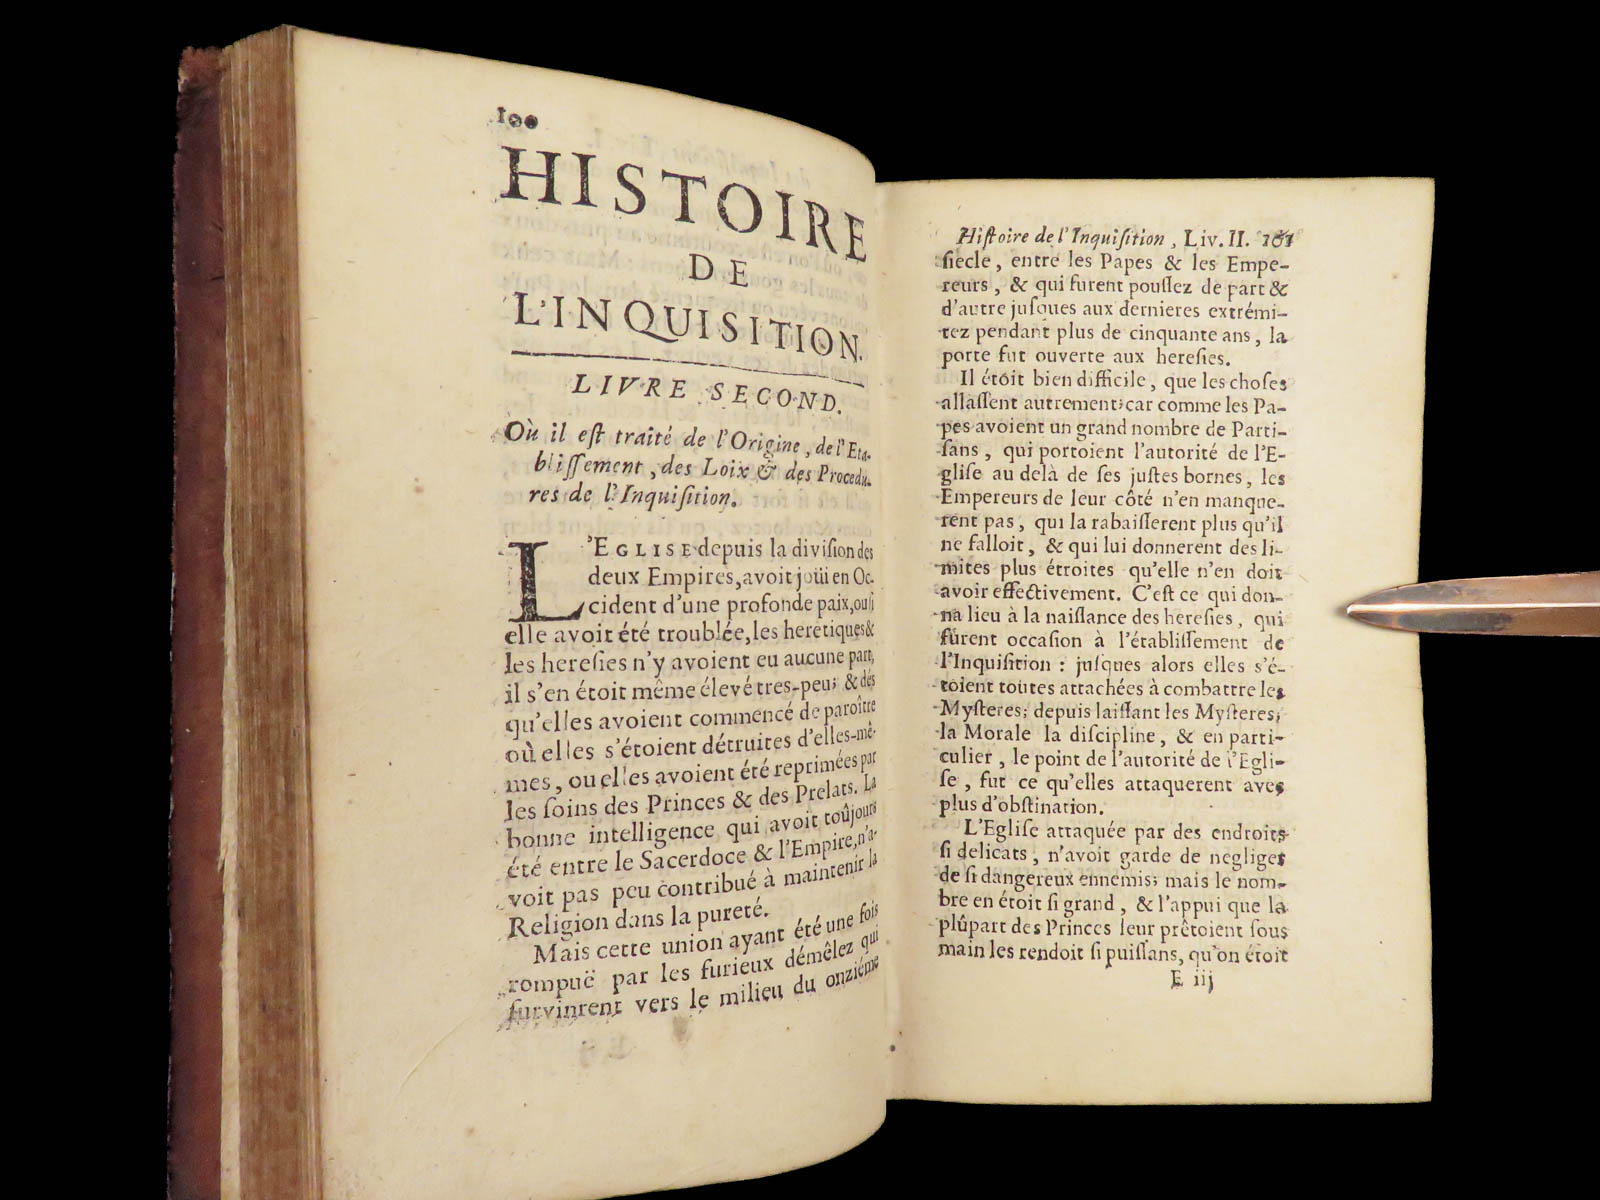 100
HISTOIRE
DE
L'INQUISITION.
LIVRE SECOND.
Où il eſt traité de l'Origine, de l'Eta-
bliſſement, des Loix & des Procedu-
res de l'Inquiſition.
L'EGLISE depuis la diviſion des
deux Empires, avoit joüi en Oc-
cident d'une profonde paix, ou ſi
elle avoit été troublée, les heretiques &
les hereſies n'y avoient eu aucune part,
il s'en étoit même élevé tres-peu; & dés
qu'elles avoient commencé de paroître
où elles s'étoient détruites d'elles-mê-
mes, ou elles avoient été reprimées par
les ſoins des Princes & des Prelats. La
bonne intelligence qui avoit toûjours
été entre le Sacerdoce & l'Empire, n'a-
voit pas peu contribué à maintenir la
Religion dans la pureté.
Mais cette union ayant été une fois
rompuë par les furieux démêlez qui
ſurvinrent vers le milieu du onziéme
Hiſtoire de l'Inquiſition, Liv. II. 101
ſiecle, entre les Papes & les Empe-
reurs, & qui furent pouſſez de part &
d'autre juſques aux dernieres extrémi-
tez pendant plus de cinquante ans, la
porte fut ouverte aux hereſies.
Il étoit bien difficile, que les choſes
allaſſent autrement; car comme les Pa-
pes avoient un grand nombre de Parti-
ſans, qui portoient l'autorité de l'E-
gliſe au delà de ſes juſtes bornes, les
Empereurs de leur côté n'en manque-
rent pas, qui la rabaiſſerent plus qu'il
ne falloit, & qui lui donnerent des li-
mites plus étroites qu'elle n'en doit
avoir effectivement. C'eſt ce qui don-
na lieu à la naiſſance des hereſies, qui
furent occaſion à l'établiſſement de
l'Inquiſition : juſques alors elles s'é-
toient toutes attachées à combattre les
Myſteres; depuis laiſſant les Myſteres,
la Morale la diſcipline, & en parti-
culier, le point de l'autorité de l'Egli-
ſe, fut ce qu'elles attaquerent avec
plus d'obſtination.
L'Egliſe attaquée par des endroits
ſi delicats, n'avoit garde de negliger
de ſi dangereux ennemis; mais le nom-
bre en étoit ſi grand, & l'appui que la
plûpart des Princes leur prêtoient ſous
main les rendoit ſi puiſſans, qu'on étoit
E iij